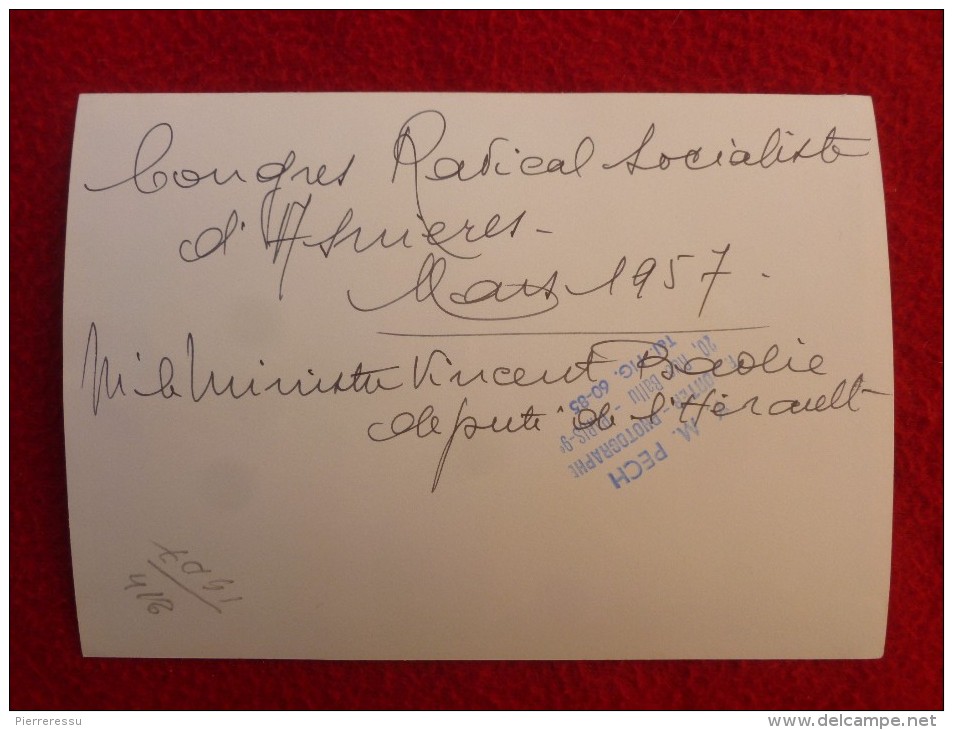 Congres Radical Socialiste
d'Asnieres -
Mars 1957.
M le Ministre Vincent Badie
député de l'Hérault
M. PECH
PHOTOGRAPHE
20, Rue Ballu - PARIS-9e
60-83
Pierreressu
www.delcampe.net